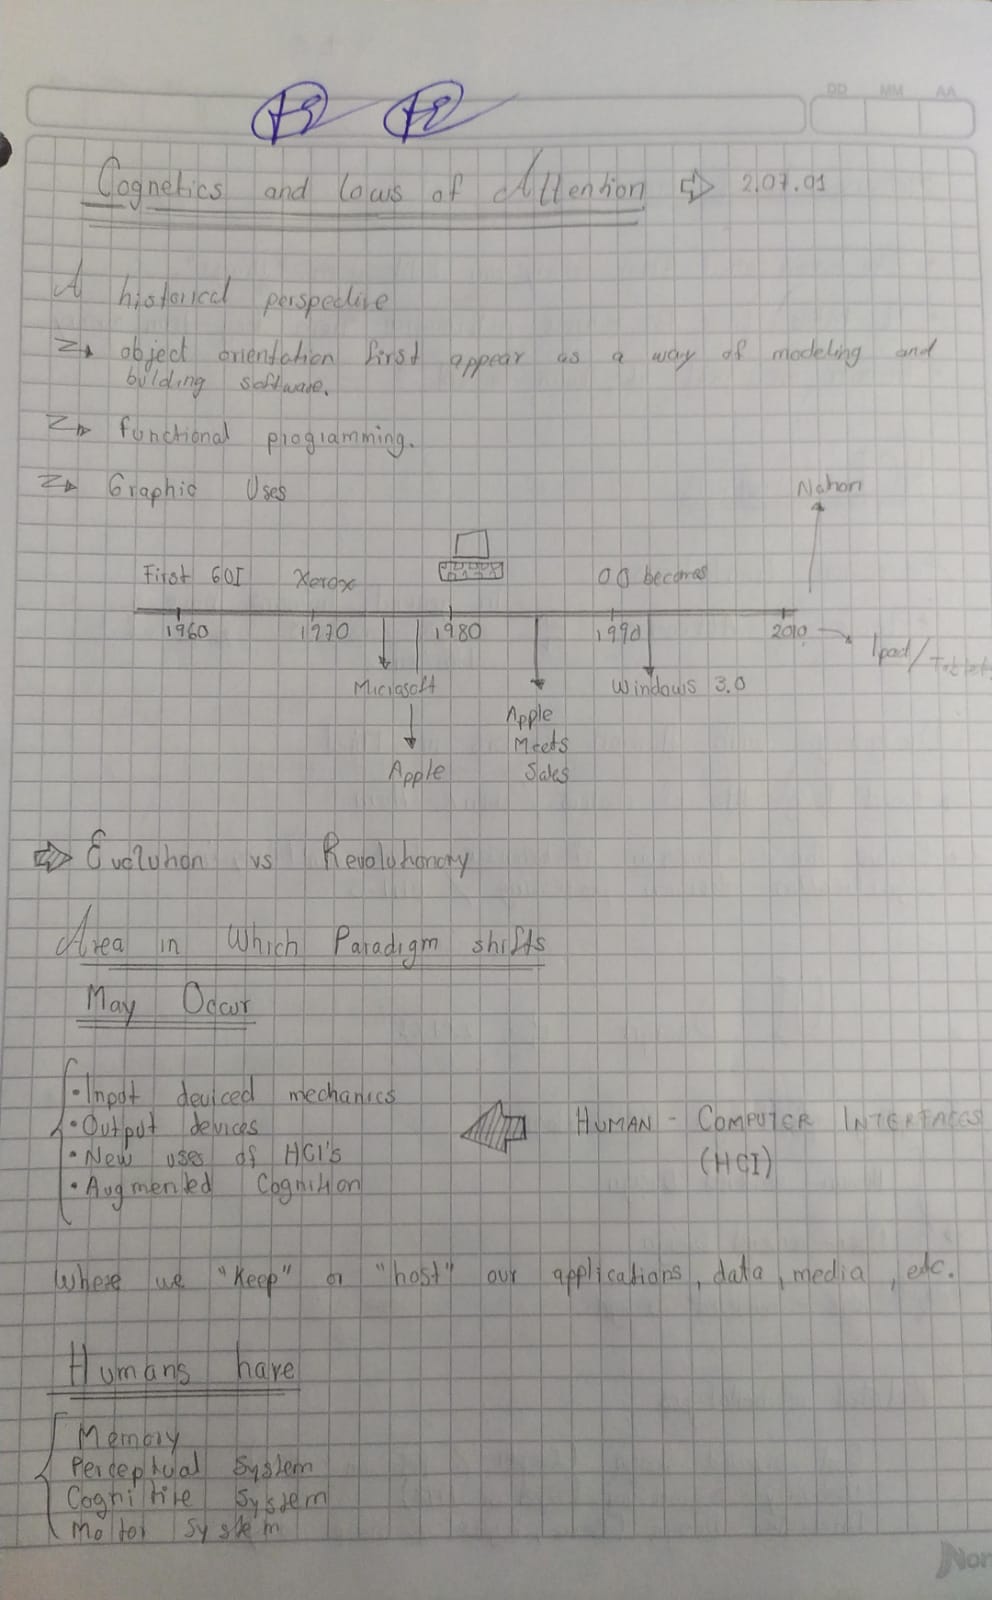 DD MM AA
Cognetics and laws of Attention ⇨ 2.07.01
A historical perspective
object orientation first appear as a way of modeling and
building software.
functional programming.
Graphic Uses
Nahon
First GUI Xerox OO becomes
1960 1970 1980 1990 2010 Ipad/Tablets
Microsoft Windows 3.0
Apple Apple
Meets
Sales
Evolution vs Revolutionary
Area in Which Paradigm shifts
May Occur
• Input deviced mechanics
• Output devices
• New uses of HCI's
• Augmented Cognition
HUMAN - COMPUTER INTERFACES
(HCI)
Where we "Keep" or "host" our applications, data, media, etc.
Humans have
Memory
Perceptual System
Cognitive System
Motor System
Nor